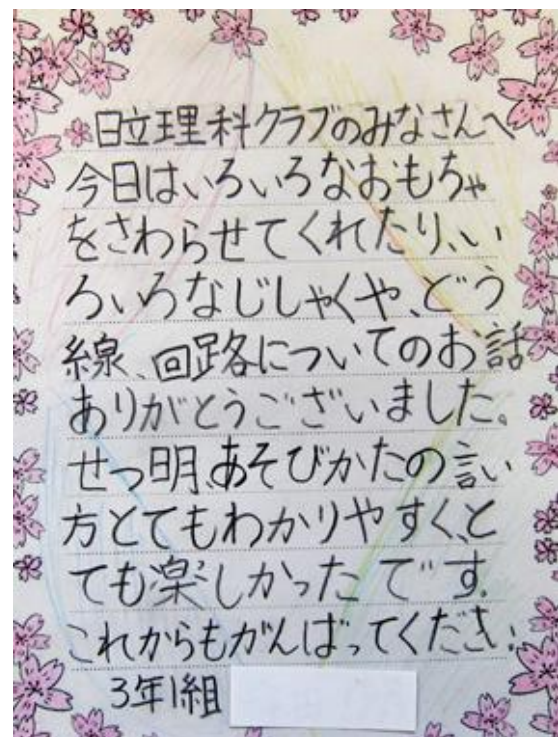 日立理科クラブのみなさんへ
今日はいろいろなおもちゃ
をさわらせてくれたり、い
ろいろなじしゃくや、どう
線、回路についてのお話
ありがとうございました。
せつ明、あそびかたの言い
方とてもわかりやすく、と
ても楽しかったです。
これからもがんばってください
3年1組